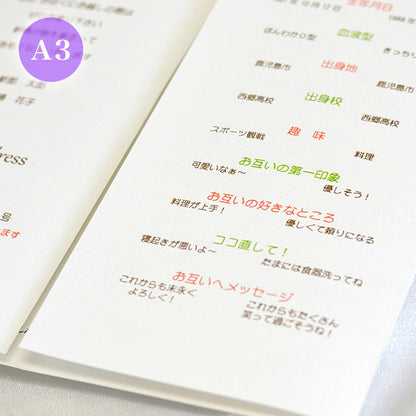 A3
太郎
花子
ress
号
ます
1987年10月12日 生年月日
ほんわかO型 血液型 きっちり
鹿児島市 出身地 鹿児島市
西郷高校 出身校 西郷高校
スポーツ観戦 趣 味 料理
お互いの第一印象
可愛いなぁ〜 優しそう！
お互いの好きなところ
料理が上手！ 優しくて頼りになる
ココ直して！
寝起きが悪いよ〜 たまには食器洗ってね
お互いへメッセージ
これからも末永く これからもたくさん
よろしく！ 笑って過ごそうね！